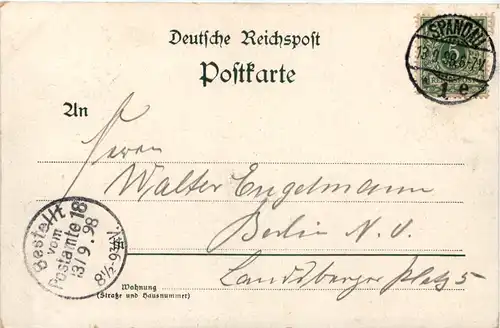 Deutsche Reichspost
Postkarte
SPANDAU
13.9.98.6-7N.
1 e
An
Herrn
Walter Engelmann
in
Berlin N.O.
Landsberger Platz 5
Wohnung
(Straße und Hausnummer)
Bestellt
vom
Postamte 18
13/9.98
8½-9½N.